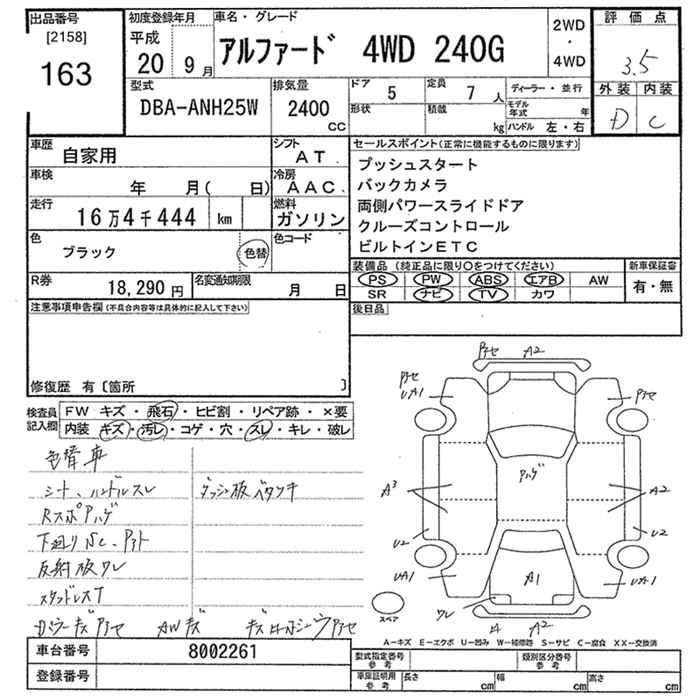 出品番号
[2158]
163
初度登録年月
平成
20 9月
車名・グレード
アルファード 4WD 240G
2WD
・
4WD
評価点
3.5
外装 内装
D C
型式
DBA-ANH25W
排気量
2400
cc
ドア
5
定員
7 人
形状
積載
kg
ディーラー・並行
モデル年式 年
ハンドル 左・右
車歴
自家用
シフト
AT
車検
年 月( 日)
冷房
AAC
走行
16万4千444 km
燃料
ガソリン
色
ブラック
色替
色コード
R券
18,290円
名変通知期限
月 日
セールスポイント(正常に機能するものに限ります)
プッシュスタート
バックカメラ
両側パワースライドドア
クルーズコントロール
ビルトインETC
装備品 (純正品に限り○をつけてください)
PS PW ABS エアB AW
SR ナビ TV カワ
新車保証書
有・無
後日品
注意事項申告欄(不具合内容等は具体的に記入して下さい)
修復歴 有〔箇所 〕
検査員記入欄
FW キズ・飛石・ヒビ割・リペア跡・×要
内装 キズ・汚レ・コゲ・穴・スレ・キレ・破レ
色替車
シート、ハンドルスレ
ダッシュ板ベタツキ
RスポPハゲ
下廻りSC、Pアト
反射板ワレ
スタッドレスT
カバーキズPアセ AWキズ
Pアセ A2
Pアセ
UA1
Pアセ
Pハゲ
A3
A2
U2
U2
UA1
A1
UA1
ワレ
A2
スペア
A-キズ E-エクボ U-凹み W-補修跡 S-サビ C-腐食 XX-交換済
車台番号
8002261
登録番号
型式指定番号
参考
類別区分番号
参考
車庫証明用
参考
長さ cm
幅 cm
高さ cm